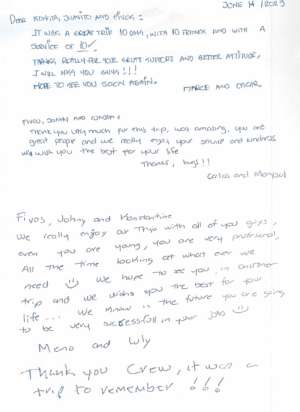 JUNE 14 / 2023
Dear KOSTIS, JUANITO AND FIVOS:
IT WAS A GREAT TRIP 10 DAYS, WITH 10 FRIENDS AND WITH A
SERVICE OF 10
THANKS REALLY FOR YOUR GREAT SUPPORT AND BETTER ATTITUDE,
I WILL MISS YOU GUYS!!!
HOPE TO SEE YOU SOON AGAIN.
MARCE AND OSCAR
FIVOS, JOHNY AND
Thank you very much for this trip, was amazing, you are
great people and we really enjoy your service and kindness
We wish you the best for your life
Thanks, hugs!!
Carlos and
Fivos, Johny and Konstantine
We really enjoy our Trip with all of you guys,
even you are young, you are very profesional,
All the time looking at what ever we
need We hope to see you in another
trip and we wish you the best for your
life... We know in the future you are going
to be very successfull in your jobs
Meno and Luly
Thank you Crew, it was a
trip to remember !!!